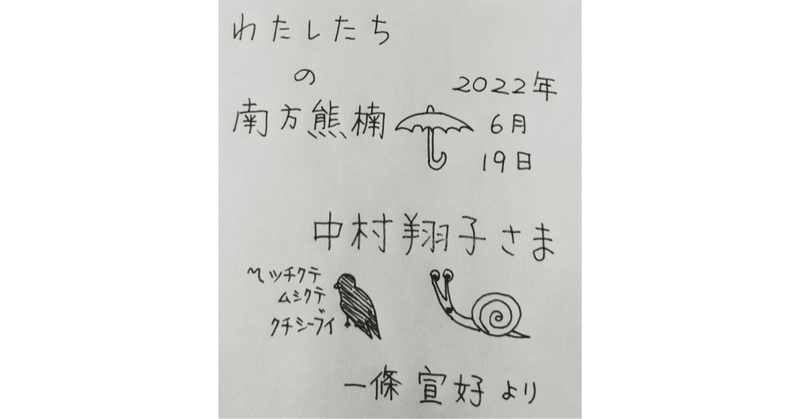 わたしたち
の
南方熊楠
2022年
6月
19日
中村翔子さま
〜ツチクテ
ムシクテ
クチシーブイ
一條宣好より